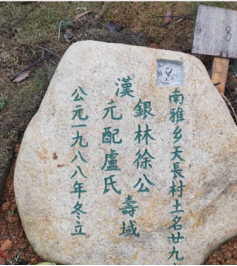 8
南雅乡天長村土名廿九
銀林徐公
漢元配盧氏
壽域
公元一九八八年冬立